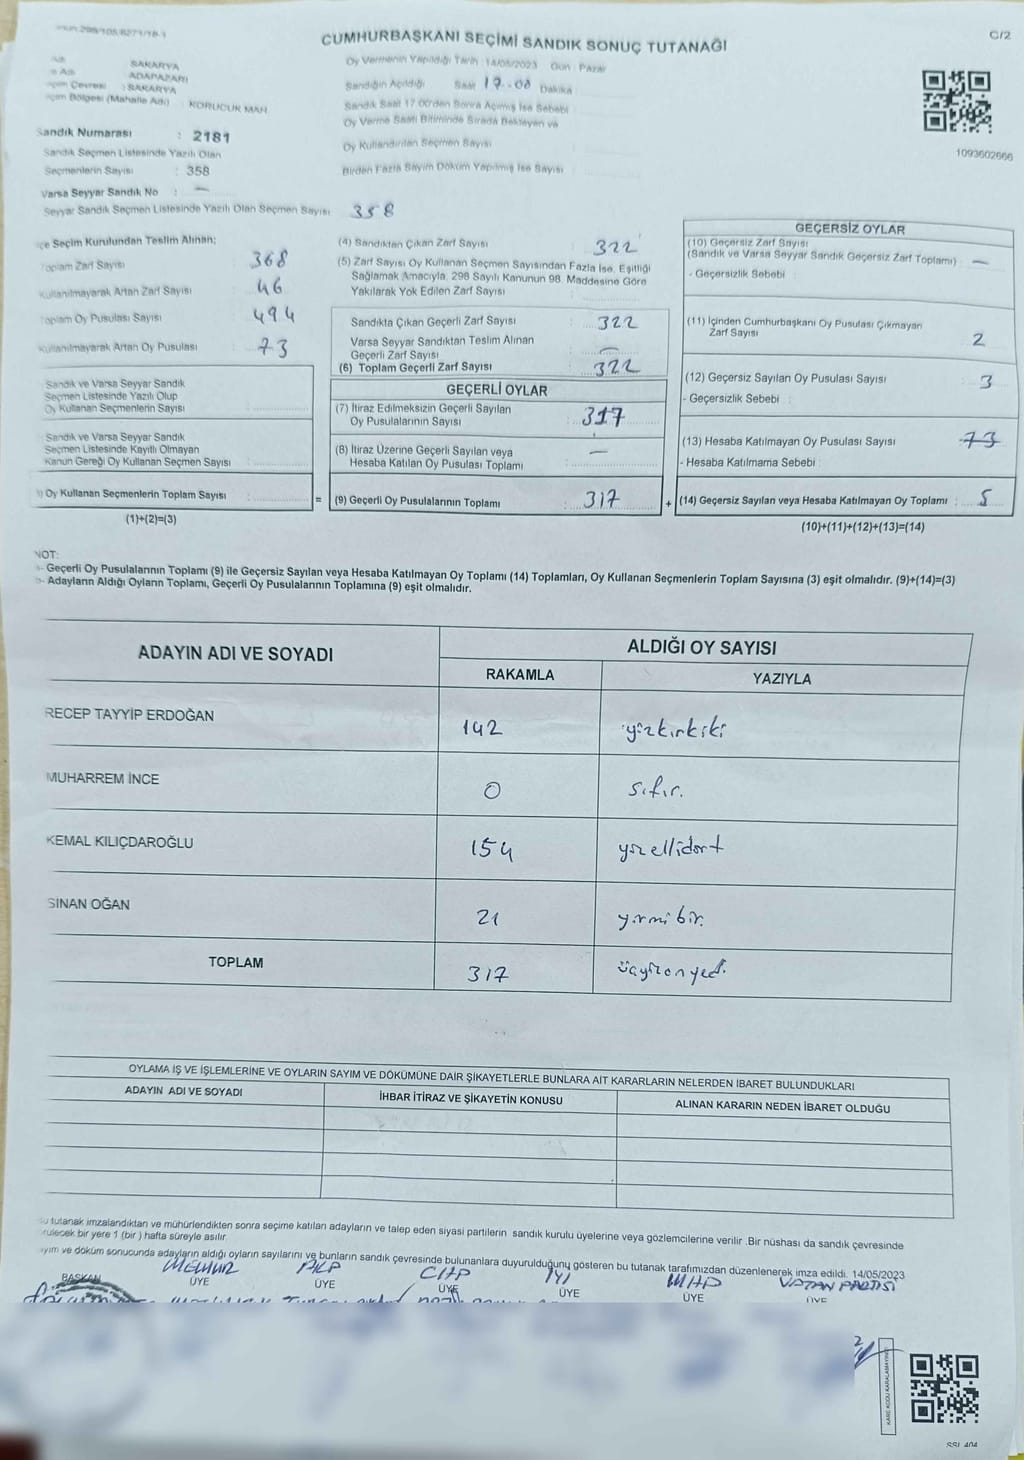 CUMHURBAŞKANI SEÇİMİ SANDIK SONUÇ TUTANAĞI
C/2
SAKARYA
ADAPAZARI
: SAKARYA
Bölgesi (Mahalle Adı) : KORUCUK MAH
Oy Vermenin Yapıldığı Tarih : 14/05/2023 Gün : Pazar
Sandığın Açıldığı Saat 17.00 Dakika
Sandık Saat 17.00'den Sonra Açılmış İse Sebebi
Oy Verme Saati Bitiminde Sırada Bekleyen ve
Oy Kullandırılan Seçmen Sayısı
Birden Fazla Sayım Döküm Yapılmış İse Sayısı
1093602666
Sandık Numarası : 2181
Sandık Seçmen Listesinde Yazılı Olan
Seçmenlerin Sayısı : 358
Varsa Seyyar Sandık No : —
Seyyar Sandık Seçmen Listesinde Yazılı Olan Seçmen Sayısı 358
çe Seçim Kurulundan Teslim Alınan;
Toplam Zarf Sayısı 368
Kullanılmayarak Artan Zarf Sayısı 46
Toplam Oy Pusulası Sayısı 494
Kullanılmayarak Artan Oy Pusulası 73
Sandık ve Varsa Seyyar Sandık
Seçmen Listesinde Yazılı Olup
Oy Kullanan Seçmenlerin Sayısı
Sandık ve Varsa Seyyar Sandık
Seçmen Listesinde Kayıtlı Olmayan
Kanun Gereği Oy Kullanan Seçmen Sayısı
) Oy Kullanan Seçmenlerin Toplam Sayısı :
(1)+(2)=(3)
(4) Sandıktan Çıkan Zarf Sayısı 322
(5) Zarf Sayısı Oy Kullanan Seçmen Sayısından Fazla İse, Eşitliği
Sağlamak Amacıyla, 298 Sayılı Kanunun 98. Maddesine Göre
Yakılarak Yok Edilen Zarf Sayısı
Sandıkta Çıkan Geçerli Zarf Sayısı : 322
Varsa Seyyar Sandıktan Teslim Alınan
Geçerli Zarf Sayısı : —
(6) Toplam Geçerli Zarf Sayısı 322
GEÇERLİ OYLAR
(7) İtiraz Edilmeksizin Geçerli Sayılan
Oy Pusulalarının Sayısı : 317
(8) İtiraz Üzerine Geçerli Sayılan veya
Hesaba Katılan Oy Pusulası Toplamı : —
= (9) Geçerli Oy Pusulalarının Toplamı : 317
GEÇERSİZ OYLAR
(10) Geçersiz Zarf Sayısı
(Sandık ve Varsa Seyyar Sandık Geçersiz Zarf Toplamı) : —
- Geçersizlik Sebebi :
(11) İçinden Cumhurbaşkanı Oy Pusulası Çıkmayan
Zarf Sayısı 2
(12) Geçersiz Sayılan Oy Pusulası Sayısı : 3
- Geçersizlik Sebebi :
(13) Hesaba Katılmayan Oy Pusulası Sayısı 73
- Hesaba Katılmama Sebebi :
+ (14) Geçersiz Sayılan veya Hesaba Katılmayan Oy Toplamı : 5
(10)+(11)+(12)+(13)=(14)
NOT:
- Geçerli Oy Pusulalarının Toplamı (9) ile Geçersiz Sayılan veya Hesaba Katılmayan Oy Toplamı (14) Toplamları, Oy Kullanan Seçmenlerin Toplam Sayısına (3) eşit olmalıdır. (9)+(14)=(3)
- Adayların Aldığı Oyların Toplamı, Geçerli Oy Pusulalarının Toplamına (9) eşit olmalıdır.
ADAYIN ADI VE SOYADI
ALDIĞI OY SAYISI
RAKAMLA YAZIYLA
RECEP TAYYİP ERDOĞAN 142 yüzkırkiki
MUHARREM İNCE 0 sıfır.
KEMAL KILIÇDAROĞLU 154 yüzellidört
SİNAN OĞAN 21 yirmi bir.
TOPLAM 317 üçyüzonyedi
OYLAMA İŞ VE İŞLEMLERİNE VE OYLARIN SAYIM VE DÖKÜMÜNE DAİR ŞİKAYETLERLE BUNLARA AİT KARARLARIN NELERDEN İBARET BULUNDUKLARI
ADAYIN ADI VE SOYADI İHBAR İTİRAZ VE ŞİKAYETİN KONUSU ALINAN KARARIN NEDEN İBARET OLDUĞU
tutanak imzalandıktan ve mühürlendikten sonra seçime katılan adayların ve talep eden siyasi partilerin sandık kurulu üyelerine veya gözlemcilerine verilir. Bir nüshası da sandık çevresinde
bir yere 1 (bir) hafta süreyle asılır.
ve döküm sonucunda adayların aldığı oyların sayılarını ve bunların sandık çevresinde bulunanlara duyurulduğunu gösteren bu tutanak tarafımızdan düzenlenerek imza edildi. 14/05/2023
MEMUR AKP CHP İYİ MHP VATAN PARTİSİ
BAŞKAN ÜYE ÜYE ÜYE ÜYE ÜYE ÜYE
KARE KODU KARALAMAYINIZ